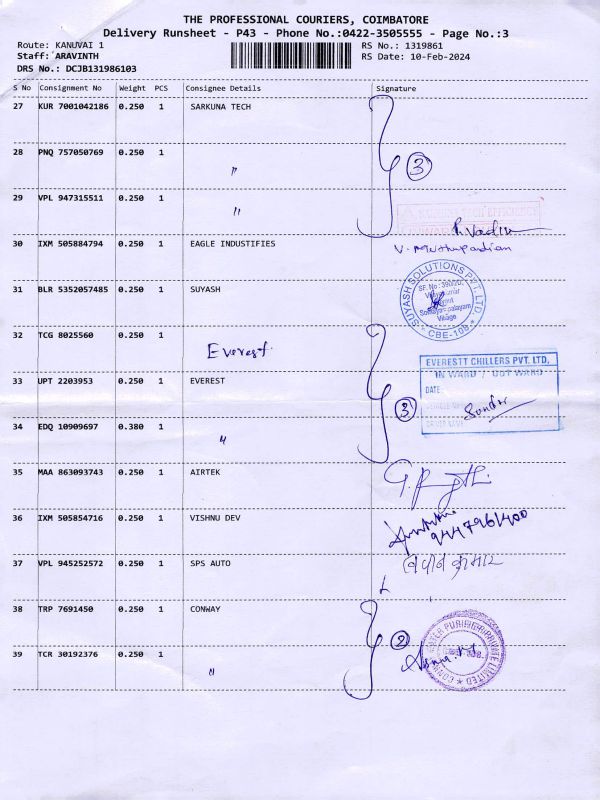 THE PROFESSIONAL COURIERS, COIMBATORE
Delivery Runsheet - P43 - Phone No.:0422-3505555 - Page No.:3
Route: KANUVAI 1 RS No.: 1319861
Staff: ARAVINTH RS Date: 10-Feb-2024
DRS No.: DCJB131986103
S No Consignment No Weight PCS Consignee Details Signature
27 KUR 7001042186 0.250 1 SARKUNA TECH
28 PNQ 757050769 0.250 1 "
3
29 VPL 947315511 0.250 1 "
30 IXM 505884794 0.250 1 EAGLE INDUSTIFIES
V. Muthupandian
31 BLR 5352057485 0.250 1 SUYASH
SUYASH SOLUTIONS PVT. LTD.
Village
CBE-108
32 TCG 8025560 0.250 1 Everest
33 UPT 2203953 0.250 1 EVEREST
EVERESTT CHILLERS PVT. LTD.
IN WARD / OUT WARD
DATE
3
34 EDQ 10909697 0.380 1 "
35 MAA 863093743 0.250 1 AIRTEK
36 IXM 505854716 0.250 1 VISHNU DEV
9447961400
37 VPL 945252572 0.250 1 SPS AUTO
38 TRP 7691450 0.250 1 CONWAY
2
WATER PURIFIER PRIVATE LIMITED
39 TCR 30192376 0.250 1 "